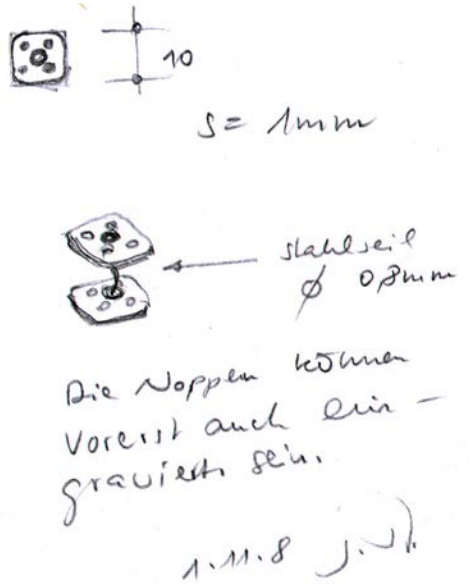 10
S = 1mm
Stahlseil
∅ 0,8mm
Die Noppen können
Vorerst auch ein-
graviert sein.
1.11.8